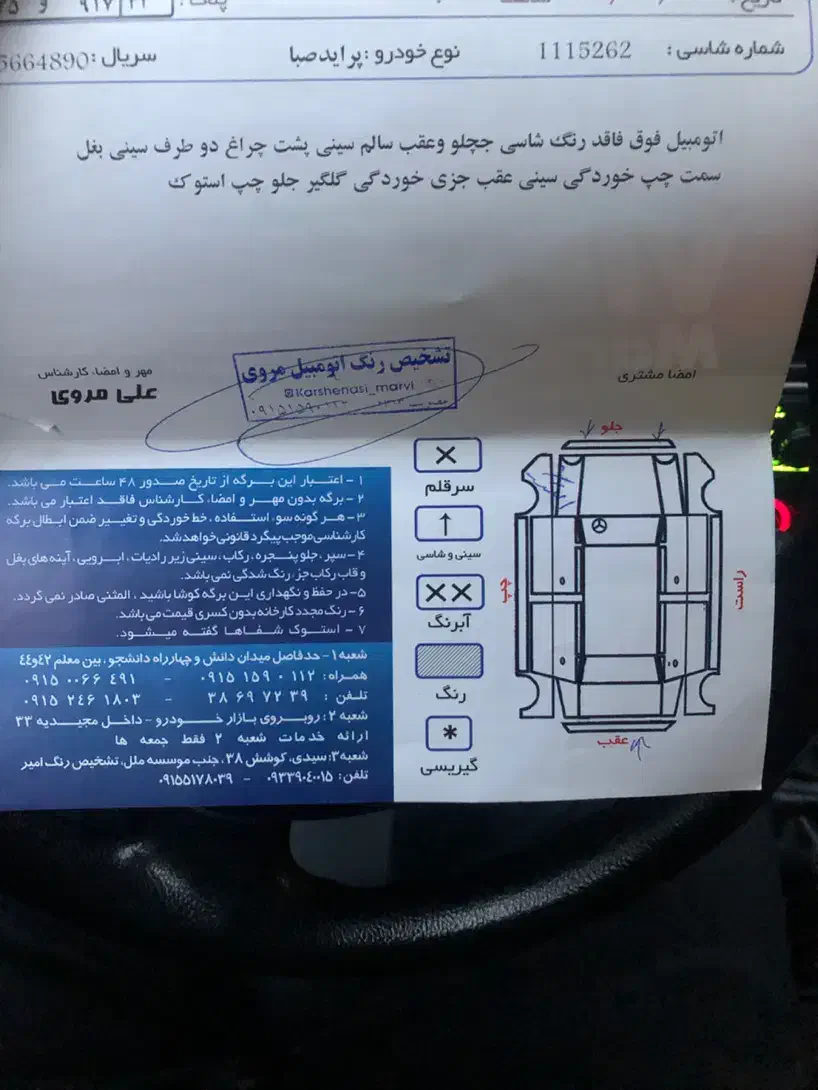 شماره شاسی : 1115262 نوع خودرو : پراید صبا سریال : 5664890
اتومبیل فوق فاقد رنگ شاسی ججلو وعقب سالم سینی پشت چراغ دو طرف سینی بغل
سمت چپ خوردگی سینی عقب جزی خوردگی گلگیر جلو چپ استوک
امضا مشتری
تشخیص رنگ اتومبیل مروی
@Karshenasi_marvi
مهر و امضاء کارشناس
علی مروی
جلو
چپ
راست
عقب
سرقلم
سینی و شاسی
آبرنگ
رنگ
گیریسی
۱ - اعتبار این برگه از تاریخ صدور ۴۸ ساعت می باشد.
۲ - برگه بدون مهر و امضاء کارشناس فاقد اعتبار می باشد.
۳ - هر گونه سو، استفاده، خط خوردگی و تغییر ضمن ابطال برگه
کارشناسی موجب پیگرد قانونی خواهد شد.
۴ - سپر، جلو پنجره، رکاب، سینی زیر رادیات، ابرویی، آینه های بغل
و قاب رکاب جز، رنگ شدگی نمی باشد.
۵ - در حفظ و نگهداری این برگه کوشا باشید، المثنی صادر نمی گردد.
۶ - رنگ مجدد کارخانه بدون کسری قیمت می باشد.
۷ - استوک شفاها گفته میشود.
شعبه ۱ - حدفاصل میدان دانش و چهارراه دانشجو، بین معلم ۴۲و۴۴
همراه: ۱۱۲ ۰ ۱۵۹ ۰۹۱۵ - ۴۹۱ ۰۰۶۶ ۰۹۱۵
تلفن : ۳۹ ۷۲ ۶۹ ۳۸ - ۱۸۰۳ ۲۴۶ ۰۹۱۵
شعبه ۲: روبروی بازار خودرو - داخل مجیدیه ۳۳
ارائه خدمات شعبه ۲ فقط جمعه ها
شعبه ۳: سیدی، کوشش ۳۸، جنب موسسه ملل، تشخیص رنگ امیر
تلفن: ۰۹۳۳۹۰۴۰۰۱۵ - ۰۹۱۵۵۱۷۸۰۳۹